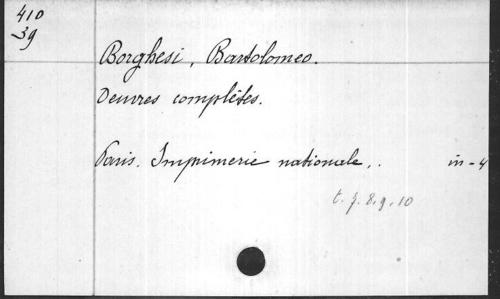 410
39
Borghesi, Bartolomeo.
Oeuvres complètes.
Paris. Imprimerie nationale. in-4
t. 7. 8, 9, 10